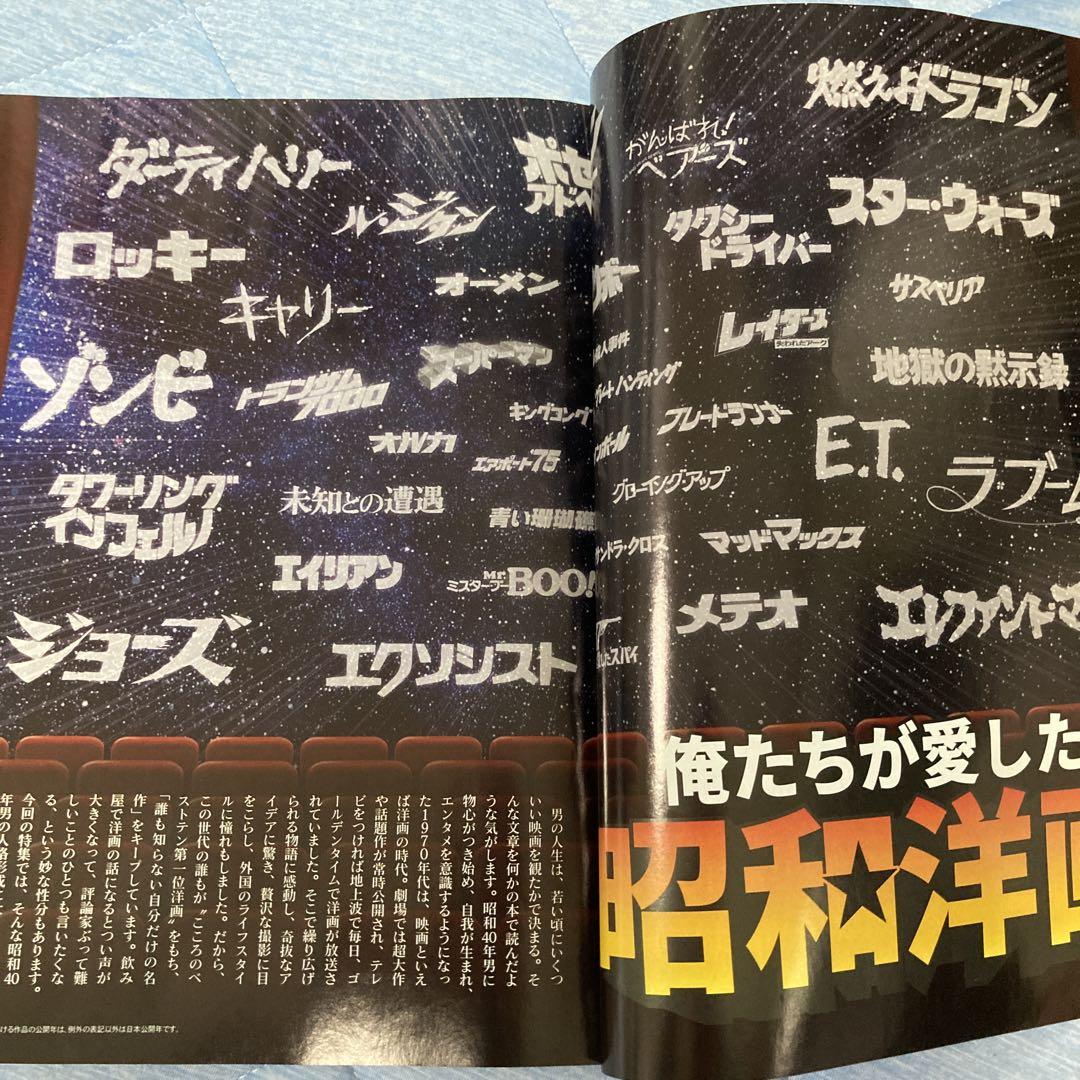 ダーティハリー
ル・ジタン
ポセ
アドベ
ロッキー
キャリー
オーメン
ゾンビ
トランザム
7000
スーパーマン
キングコング
オルカ
エアポート'75
タワーリング
インフェルノ
未知との遭遇
青い珊瑚
エイリアン
Mr.
ミスター・ブー
BOO!
ジョーズ
エクソシスト
燃えよドラゴン
がんばれ!
ベアーズ
タクシー
ドライバー
スター・ウォーズ
サスペリア
レイダース
失われたアーク
人事件
地獄の黙示録
ハンティング
ブレードランナー
ンボール
E.T.
グローイング・アップ
ラ・ブーム
サンドラ・クロス
マッドマックス
メテオ
エレファント・マ
したスパイ
俺たちが愛した
昭和洋画
男の人生は、若い頃にいくつ
い映画を観たかで決まる。そ
んな文章を何かの本で読んだよ
うな気がします。昭和40年男に
物心がつき始め、自我が生まれ、
エンタメを意識するようになっ
た1970年代は、映画といえ
ば洋画の時代。劇場では超大作
や話題作が常時公開され、テレ
ビをつければ地上波で毎日、ゴ
ールデンタイムで洋画が放送さ
れていました。そこで繰り広げ
られる物語に感動し、奇抜なア
イデアに驚き、贅沢な撮影に目
をこらし、外国のライフスタイ
ルに憧れもしました。だから、
この世代の誰もが“こころのベ
ストテン第一位洋画”をもち、
「誰も知らない自分だけの名
作」をキープしています。飲み
屋で洋画の話になるとつい声が
大きくなって、評論家ぶって難
しいことのひとつも言いたくな
る、という妙な性分もあります。
今回の特集では、そんな昭和40
年男の人格形成に
ける作品の公開年は、例外の表記以外は日本公開年です。